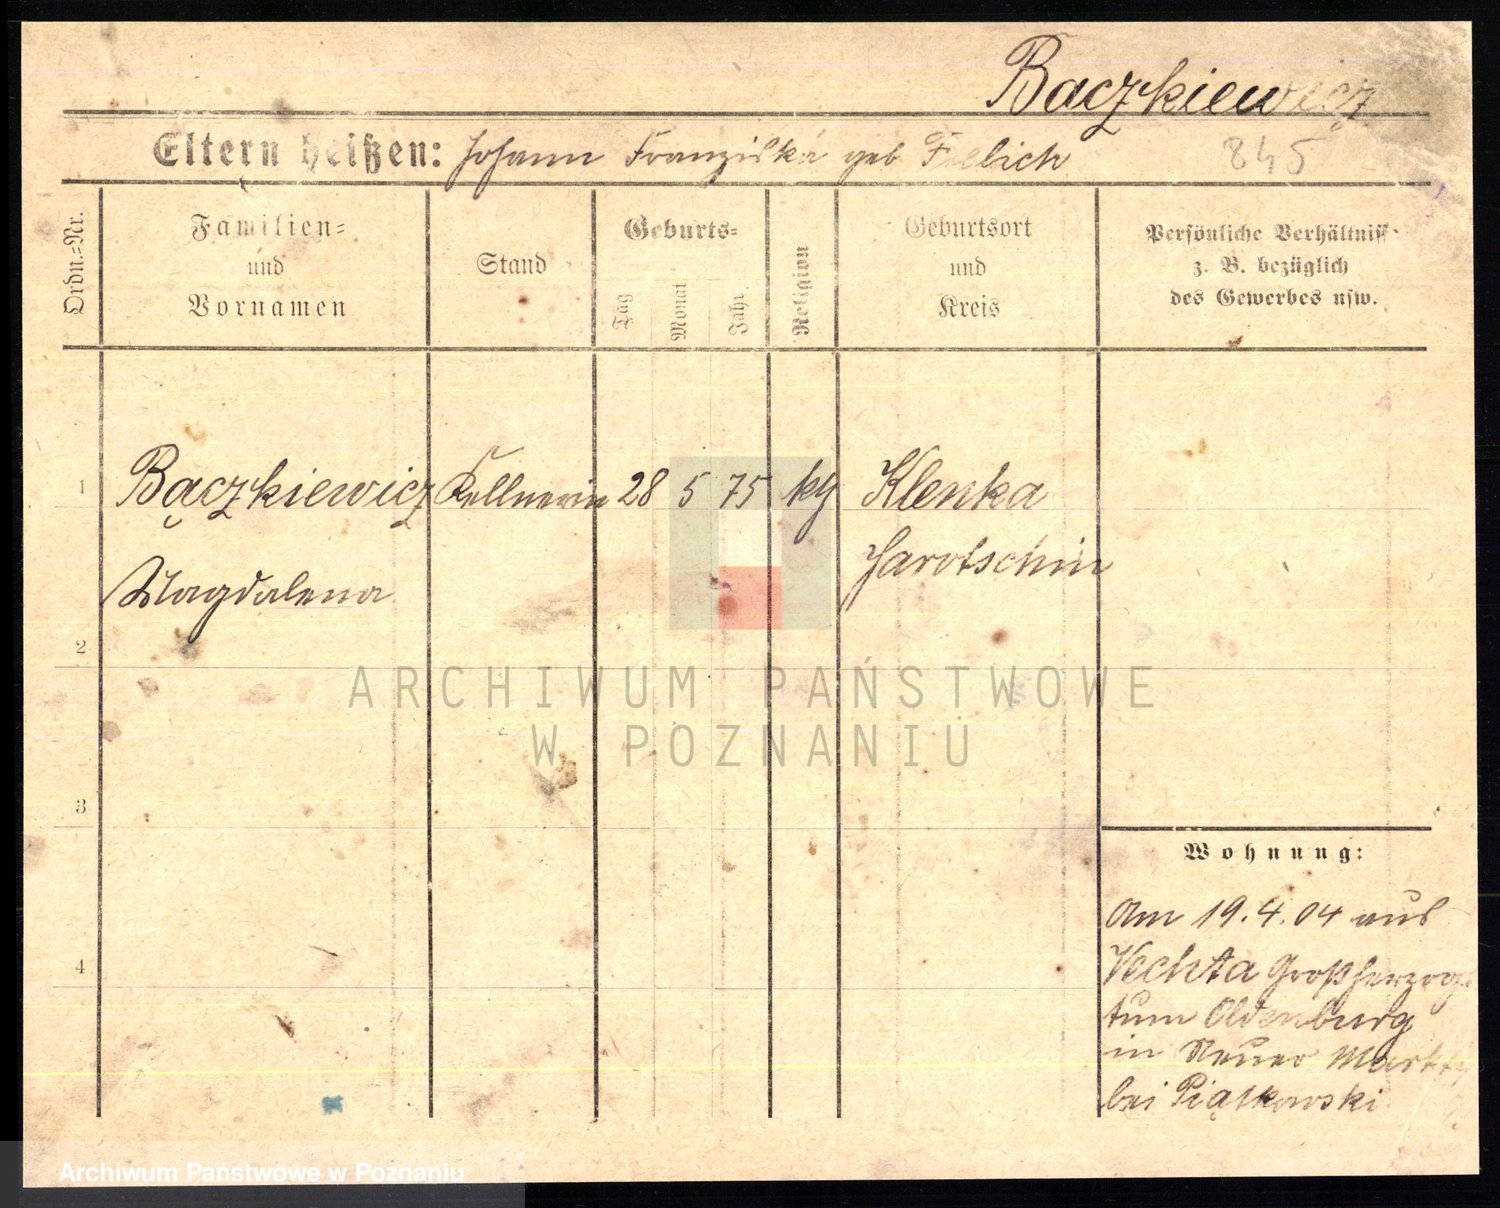 Bączkiewicz
845
Eltern heißen: Johann Franziska geb
Ordn.=Nr.
Familien=
und
Vornamen
Stand
Geburts=
Tag
Monat
Jahr.
Religion
Geburtsort
und
Kreis
Persönliche Verhältniss
z. B. bezüglich
des Gewerbes usw.
1 Bączkiewicz Kellnerin 28 5 75 Klenka
Jarotschin
Magdalena
2
3
4
Wohnung:
Am 19.4.04 aus
Vechta Großherzog-
tum Oldenburg
in Neuer Markt
bei Piątkowski
ARCHIWUM PAŃSTWOWE
W POZNANIU
Archiwum Państwowe w Poznaniu